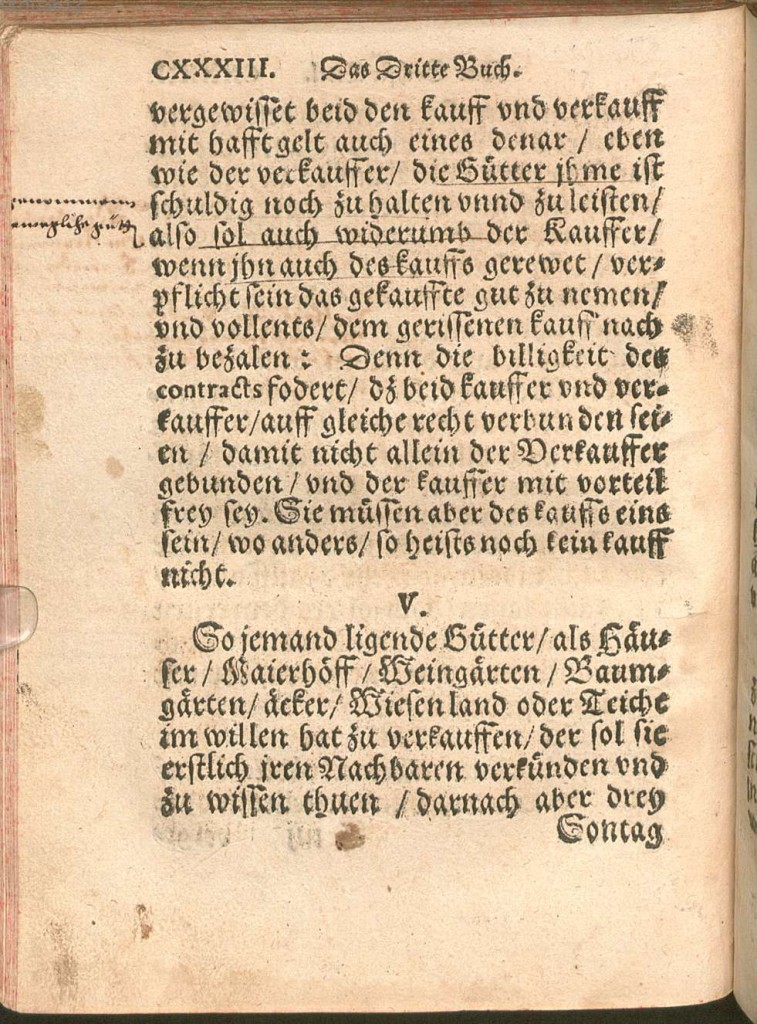 CXXXIII. Das Dritte Buch.
vergewisset beid den kauff vnd verkauff
mit hafftgelt auch eines denar / eben
wie der verkauffer/ die Gütter jhme ist
schuldig noch zu halten vnnd zu leisten/
also sol auch widerumb der Kauffer/
wenn jhn auch des kauffs gerewet / ver⸗
pflicht sein das gekauffte gut zu nemen/
vnd vollents/ dem gerissenen kauff nach
zu bezalen : Denn die billigkeit des
contracts fodert/ dz beid kauffer vnd ver⸗
kauffer/auff gleiche recht verbunden sei⸗
en / damit nicht allein der Verkauffer
gebunden / vnd der kauffer mit vorteil
frey sey. Sie müssen aber des kauffs eins
sein/ wo anders/ so heists noch kein kauff
nicht.
V.
So jemand ligende Gütter/ als Häu⸗
ser / Maierhöff / Weingärten / Baum⸗
gärten/ äcker/ Wiesen land oder Teiche
im willen hat zu verkauffen/ der sol sie
erstlich jren Nachbaren verkünden vnd
zu wissen thuen / darnach aber drey
Sontag